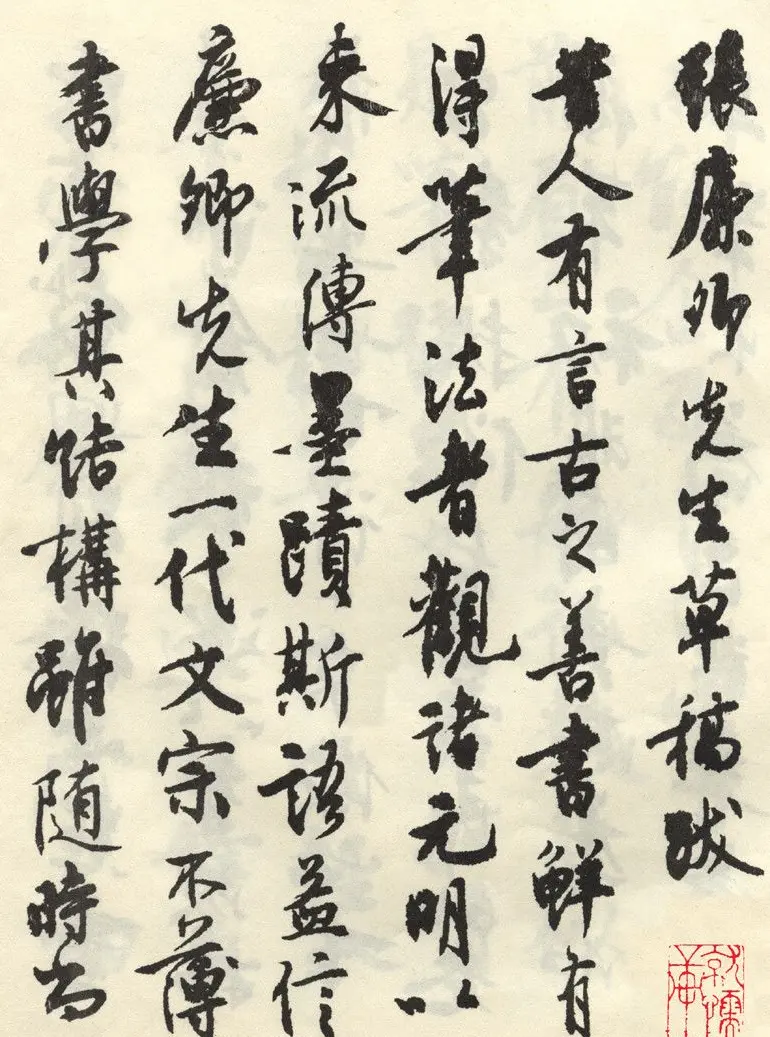 張廉卿先生草稿跋
昔人有言古之善書鮮有
得筆法者觀諸元明以
来流傳墨蹟斯語益信
廉卿先生一代文宗不薄
書學其結構雖随時尚